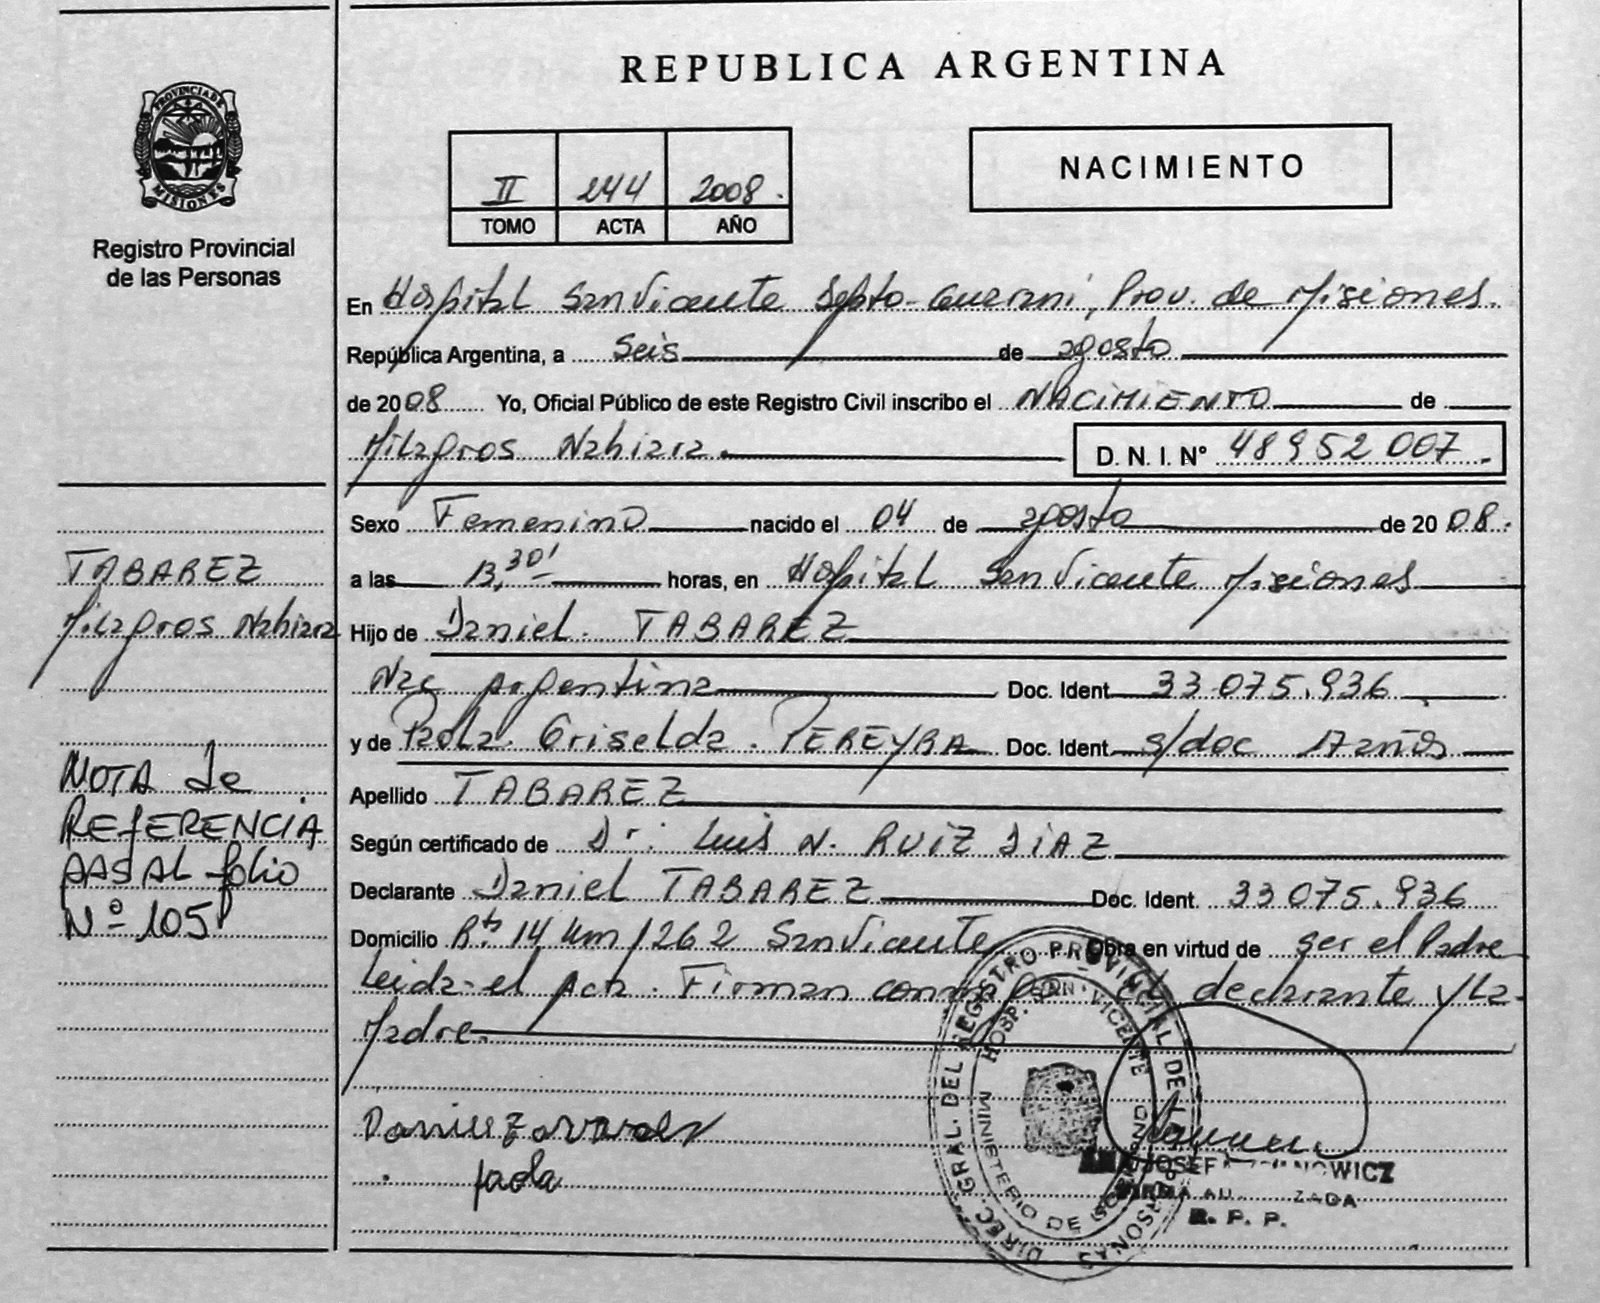 REPUBLICA ARGENTINA
PROVINCIA DE
MISIONES
Registro Provincial
de las Personas
II 244 2008.
TOMO ACTA AÑO
NACIMIENTO
En Hospital San Vicente Depto. Guarani, Prov. de Misiones.
República Argentina, a Seis de agosto
de 2008 Yo, Oficial Público de este Registro Civil inscribo el NACIMIENTO de
Milagros Nahiara. D. N. I. Nº 48952007.
Sexo Femenino nacido el 04 de agosto de 2008.
a las 13,30' horas, en Hospital San Vicente Misiones
Hijo de Daniel. TABAREZ
Nac Argentina Doc. Ident. 33 075.936
y de Paola. Griselda. PEREYRA Doc. Ident. s/doc 17 años
Apellido TABAREZ
Según certificado de Dr: Luis N. RUIZ DIAZ
Declarante Daniel TABAREZ Doc. Ident. 33 075.936
Domicilio Rta 14 km 1262 San Vicente Obra en virtud de ser el Padre
Leida el Acta. Firman conmigo el declarante y La
Madre.
TABAREZ
Milagros Nahiara
NOTA de
REFERENCIA
PASA AL folio
Nº 105
paola
DIREC. GRAL. DEL REGISTRO PROVINCIAL DE LAS PERSONAS
HOSP. SAN VICENTE
MINISTERIO DE GOBIERNO
JOSEFA
R. P. P.